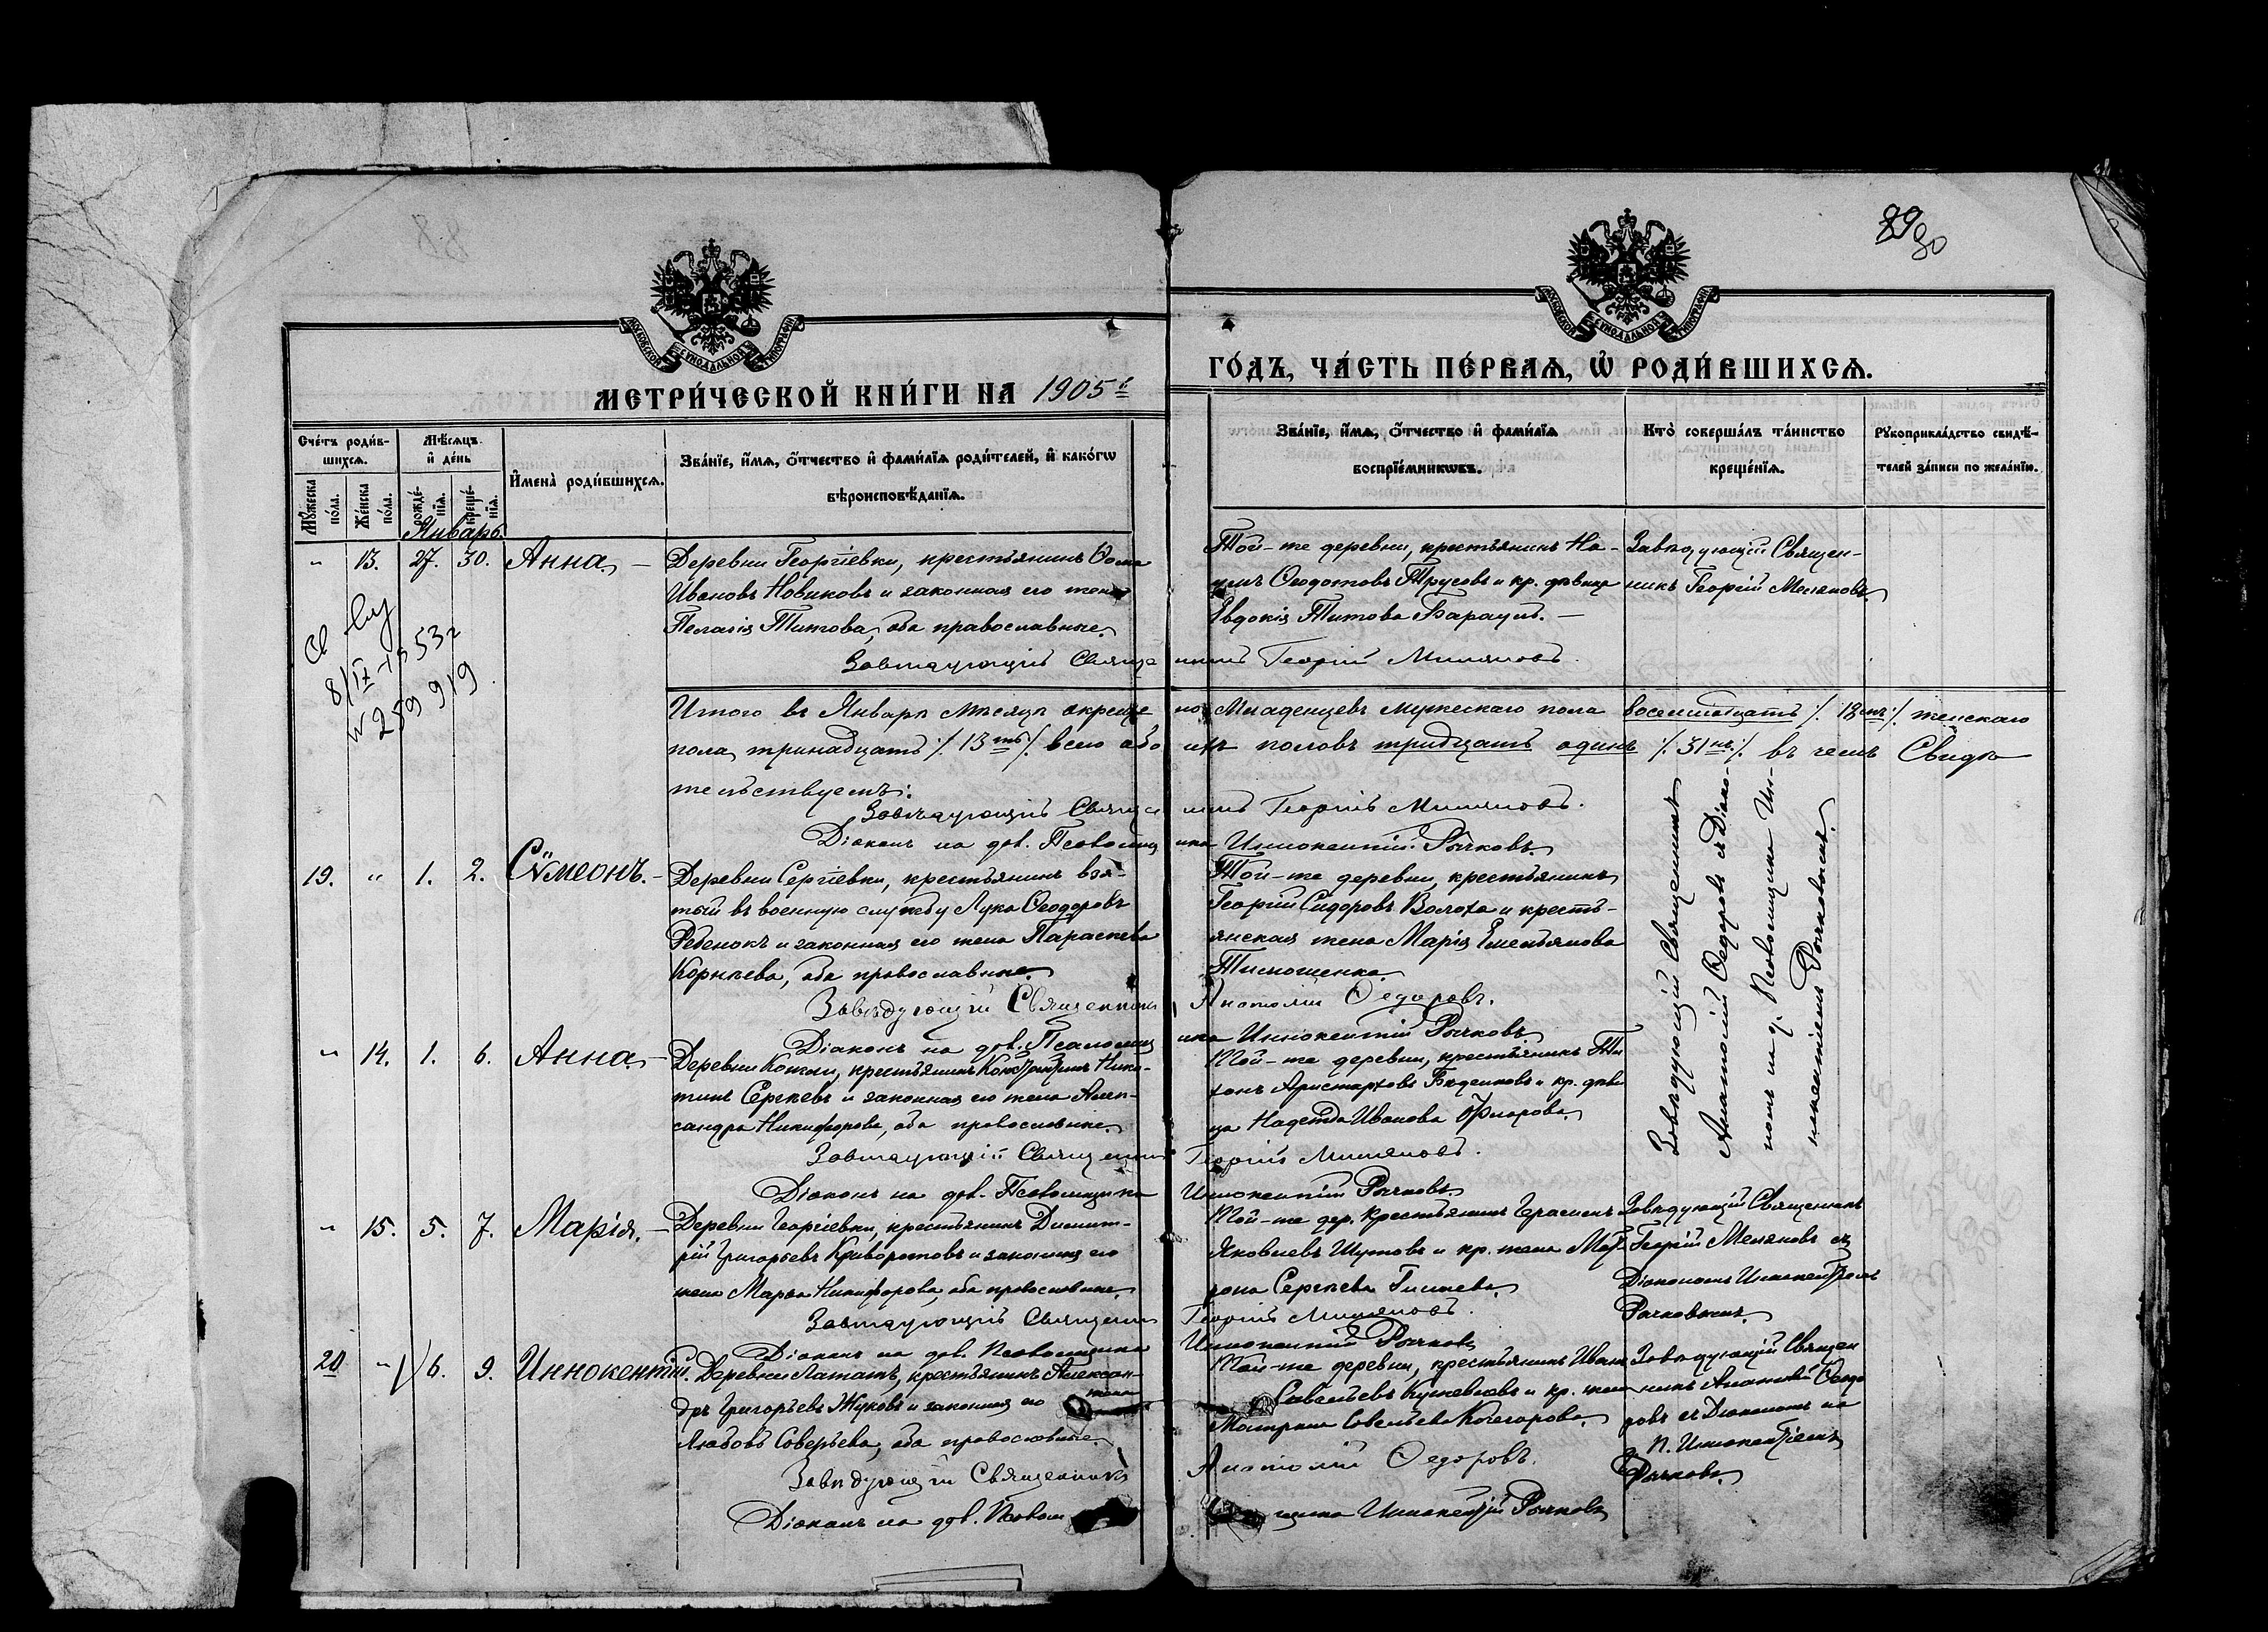 88
89
90
МОСКОВСКОЙ СѴНОДАЛЬНОЙ ТИПОГРАФІИ
МОСКОВСКОЙ СѴНОДАЛЬНОЙ ТИПОГРАФІИ
МЕТРИ́ЧЕСКОЙ КНИ́ГИ НА 1905 г.
ГО́ДЪ, ЧА́СТЬ ПЕ́РВАѦ, Ѽ РОДИ́ВШИХСѦ.
Сче́тъ роди́в-
шихсѧ.
Мѣ́сѧцъ
и҆ де́нь
Мꙋ́жеска по́ла.
Же́нска по́ла.
рожде́-нїѧ.
креще́-нїѧ.
И҆мена̀ роди́вшихсѧ.
Зва́нїе, и҆́мѧ, ѻ҆́тчество и҆ фами́лїѧ роди́телей, и҆ како́гѡ
вѣроисповѣ́данїѧ.
Зва́нїе, и҆́мѧ, ѻ҆́тчество и҆ фами́лїѧ
воспрїе́мникѡвъ.
Кто̀ соверша́лъ та́инство
креще́нїѧ.
Рꙋкоприкла́дство свидѣ́-
телей за́писи по жела́нїю.
Январь.
" 13. 27. 30. Анна. –
Деревни Георгіевки, крестьянинъ Ѳома
Ивановъ Новиковъ и законная его жена
Пелагія Титова, оба православные.
Той-же деревни, крестьянинъ На-
умъ Ѳеодотовъ Трусовъ и кр. дѣвица
Евдокія Титова Бараулъ. –
Завѣдующій Священ-
никъ Георгій Меляновъ.
Завѣдующій Священникъ Георгій Меляновъ.
8/IX-1953 г
№ 259919
Итого въ Январѣ мѣсяцѣ окрещено Младенцевъ мужескаго пола восемнадцать /. 18ть /. женскаго
пола, тринадцать /. 13ть /. всего обоихъ половъ тридцать одинъ /. 31нъ /. въ чемъ Свидѣ
тельствуемъ:
Завѣдующій Священникъ Георгій Меляновъ.
Діаконъ на дов. Псаломщика Иннокентій Рычковъ.
19. " 1. 2. Сѵмеонъ. –
Деревни Сергіевки, крестьянинъ взя-
тый въ военную службу Лука Ѳеодоровъ
Ребенокъ и законная его жена Параскева
Корнѣева, оба православные.
Той-же деревни, крестьянинъ
Георгій Сидоровъ Волоха и кресть-
янская жена Марія Емельянова
Тимошенко.
Завѣдующій Священникъ
Анатолій Ѳедоровъ съ Діако-
номъ на д. Псаломщика Ин-
нокентіемъ Рычковымъ.
Завѣдующій Священникъ Анатолій Ѳедоровъ.
Діаконъ на дов. Псаломщика Иннокентій Рычковъ.
" 14. 1. 6. Анна. –
Деревни Кожли, крестьянинъ Кондратій Ники-
тинъ Сергѣевъ и законная его жена Алек-
сандра Никифорова, оба православные.
Той-же деревни, крестьянинъ Ти
хонъ Аристарховъ и кр. дѣви
ца Надежда Иванова Флорова.
Завѣдующій Священникъ Георгій Меляновъ.
Діаконъ на дов. Псаломщика Иннокентій Рычковъ.
" 15. 5. 7. Марія. –
Деревни Георгіевки, крестьянинъ Димит-
рій Григорьевъ Криворотовъ и законная его
жена Марѳа Никифорова, оба православные.
Той-же дер. Крестьянинъ Герасимъ
Яковлевъ Шутовъ и кр. жена Мат-
рона Сергѣева
Завѣдующій Священникъ
Георгій Меляновъ съ
Діакономъ Иннокентіемъ
Рычковымъ.
Завѣдующій Священникъ Георгій Меляновъ.
Діаконъ на дов. Псаломщика Иннокентій Рычковъ
20 " 6. 9. Иннокентій.
Деревни Лататъ, крестьянинъ Алексан-
дръ Григорьевъ Жуковъ и законная его жена
Любовь Савельева, оба православные.
Той-же деревни, крестьянинъ Иванъ
Савельевъ и кр. жена
Матрена Савельева Кочегарова.
Завѣдующій Священ
никъ Анатолій Ѳедо
ровъ съ Діакономъ на
п. Иннокентіемъ
Рычковъ.
Завѣдующій Священникъ Анатолій Ѳедоровъ.
Діаконъ на дов. Псаломщика Иннокентій Рычковъ